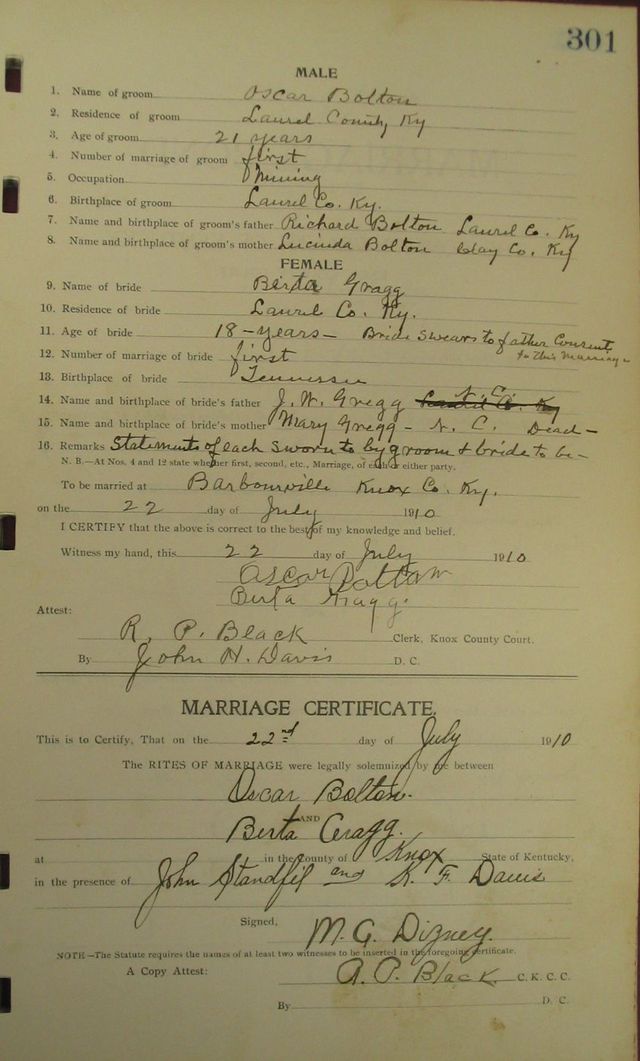 301
MALE
1. Name of groom Oscar Bolton
2. Residence of groom Laurel County Ky
3. Age of groom 21 years
4. Number of marriage of groom first
5. Occupation Mining
6. Birthplace of groom Laurel Co. Ky.
7. Name and birthplace of groom's father Richard Bolton Laurel Co. Ky
8. Name and birthplace of groom's mother Lucinda Bolton Clay Co. Ky
FEMALE
9. Name of bride Birta Gragg
10. Residence of bride Laurel Co. Ky.
11. Age of bride 18-years- Bride swears to father Consent
to this marriage
12. Number of marriage of bride first
13. Birthplace of bride Tennessee
14. Name and birthplace of bride's father J. W. Gregg N. C.
15. Name and birthplace of bride's mother Mary Gregg - N. C. Dead -
16. Remarks Statements of each sworn to by groom & bride to be-
N. B.—At Nos. 4 and 12 state whether first, second, etc., Marriage, of each or either party.
To be married at Barbourville Knox Co. Ky.
on the 22 day of July 1910
I CERTIFY that the above is correct to the best of my knowledge and belief.
Witness my hand, this 22 day of July 1910
Oscar Bolton
Birta Gragg.
Attest:
R. P. Black Clerk, Knox County Court.
By John H. Davis D. C.
MARRIAGE CERTIFICATE.
This is to Certify, That on the 22nd day of July 1910
The RITES OF MARRIAGE were legally solemnized by me between
Oscar Bolton.
AND
Berta Gragg.
at in the County of Knox State of Kentucky,
in the presence of John Standfil and K. F. Davis
Signed,
M. G. Dizney.
NOTE—The Statute requires the names of at least two witnesses to be inserted in the foregoing certificate.
A Copy Attest: R. P. Black C. K. C. C.
By D. C.